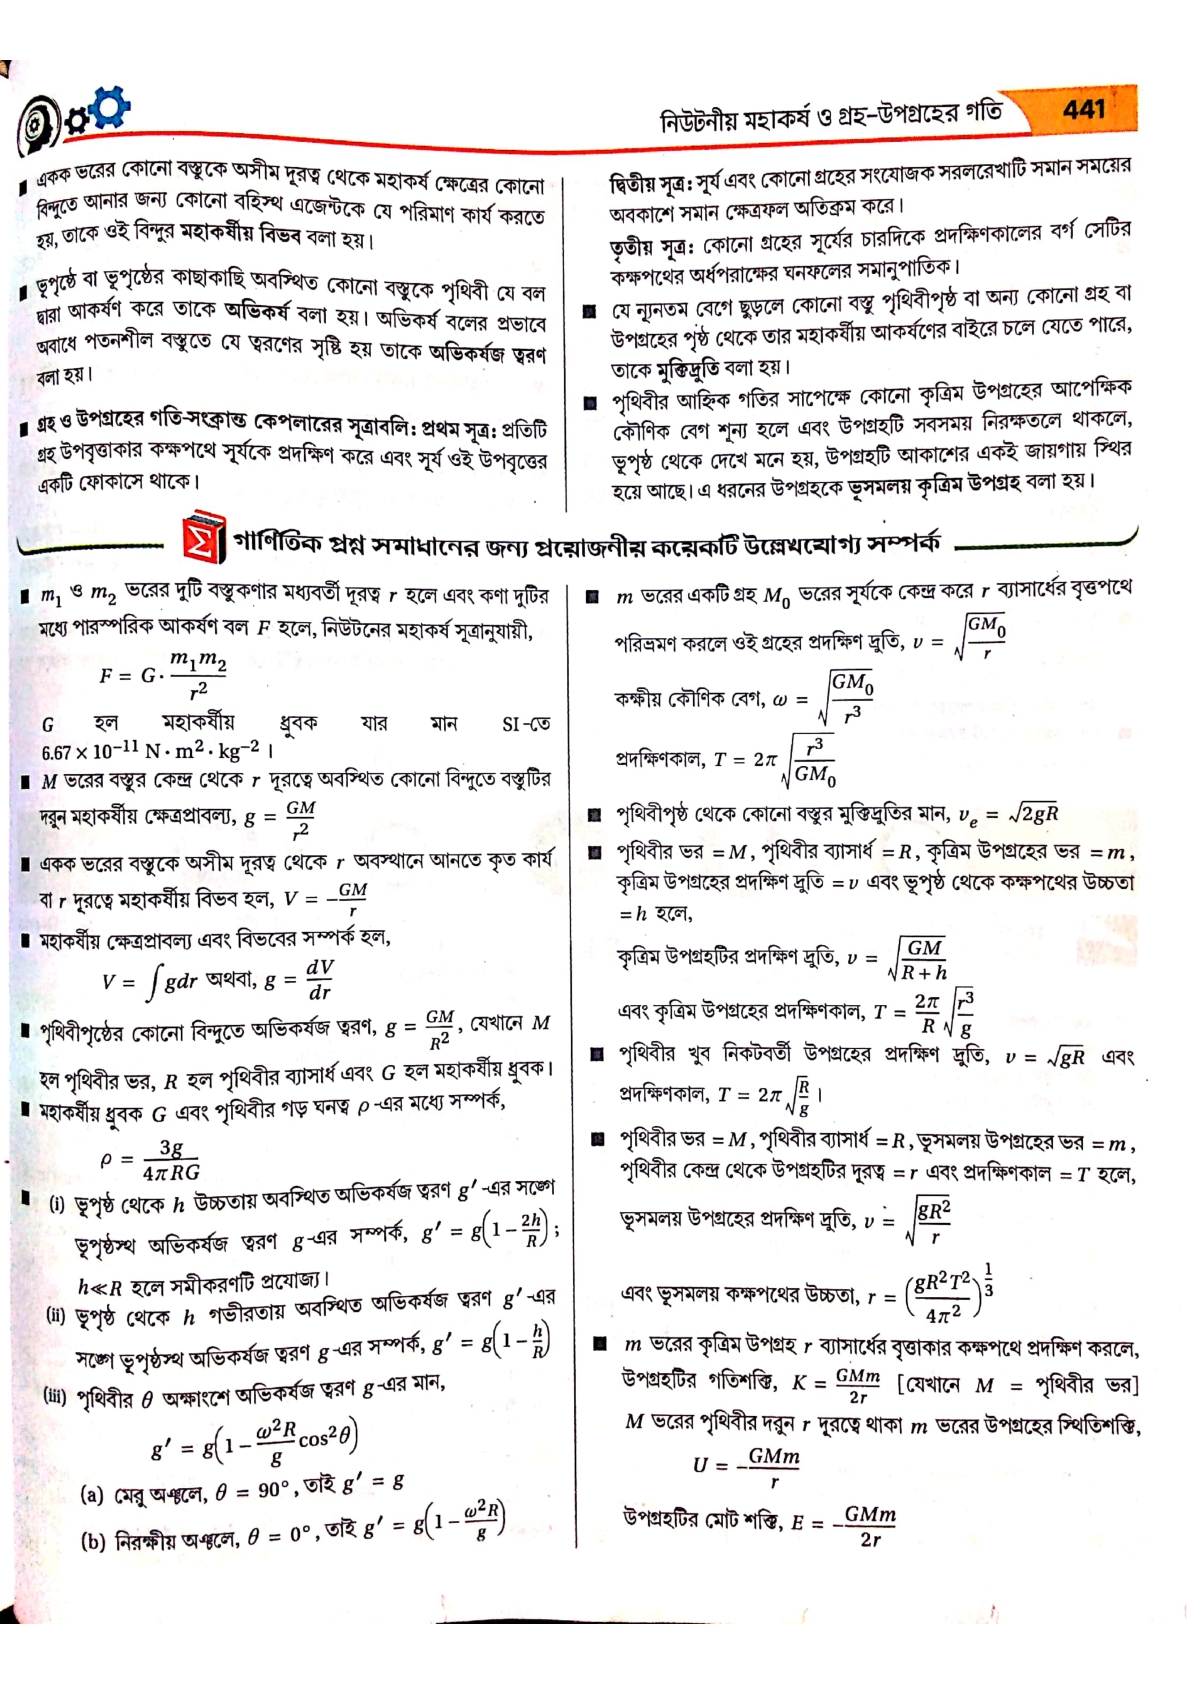 নিউটনীয় মহাকর্ষ ও গ্রহ-উপগ্রহের গতি 441
■ একক ভরের কোনো বস্তুকে অসীম দূরত্ব থেকে মহাকর্ষ ক্ষেত্রের কোনো
বিন্দুতে আনার জন্য কোনো বহিস্থ এজেন্টকে যে পরিমাণ কার্য করতে
হয়, তাকে ওই বিন্দুর মহাকর্ষীয় বিভব বলা হয়।
■ ভূপৃষ্ঠে বা ভূপৃষ্ঠের কাছাকাছি অবস্থিত কোনো বস্তুকে পৃথিবী যে বল
দ্বারা আকর্ষণ করে তাকে অভিকর্ষ বলা হয়। অভিকর্ষ বলের প্রভাবে
অবাধে পতনশীল বস্তুতে যে ত্বরণের সৃষ্টি হয় তাকে অভিকর্ষজ ত্বরণ
বলা হয়।
■ গ্রহ ও উপগ্রহের গতি-সংক্রান্ত কেপলারের সূত্রাবলি: প্রথম সূত্র: প্রতিটি
গ্রহ উপবৃত্তাকার কক্ষপথে সূর্যকে প্রদক্ষিণ করে এবং সূর্য ওই উপবৃত্তের
একটি ফোকাসে থাকে।
দ্বিতীয় সূত্র: সূর্য এবং কোনো গ্রহের সংযোজক সরলরেখাটি সমান সময়ের
অবকাশে সমান ক্ষেত্রফল অতিক্রম করে।
তৃতীয় সূত্র: কোনো গ্রহের সূর্যের চারদিকে প্রদক্ষিণকালের বর্গ সেটির
কক্ষপথের অর্ধপরাক্ষের ঘনফলের সমানুপাতিক।
■ যে ন্যূনতম বেগে ছুড়লে কোনো বস্তু পৃথিবীপৃষ্ঠ বা অন্য কোনো গ্রহ বা
উপগ্রহের পৃষ্ঠ থেকে তার মহাকর্ষীয় আকর্ষণের বাইরে চলে যেতে পারে,
তাকে মুক্তিদ্রুতি বলা হয়।
■ পৃথিবীর আহ্নিক গতির সাপেক্ষে কোনো কৃত্রিম উপগ্রহের আপেক্ষিক
কৌণিক বেগ শূন্য হলে এবং উপগ্রহটি সবসময় নিরক্ষতলে থাকলে,
ভূপৃষ্ঠ থেকে দেখে মনে হয়, উপগ্রহটি আকাশের একই জায়গায় স্থির
হয়ে আছে। এ ধরনের উপগ্রহকে ভূসমলয় কৃত্রিম উপগ্রহ বলা হয়।
Σ গাণিতিক প্রশ্ন সমাধানের জন্য প্রয়োজনীয় কয়েকটি উল্লেখযোগ্য সম্পর্ক
■ m₁ ও m₂ ভরের দুটি বস্তুকণার মধ্যবর্তী দূরত্ব r হলে এবং কণা দুটির
মধ্যে পারস্পরিক আকর্ষণ বল F হলে, নিউটনের মহাকর্ষ সূত্রানুযায়ী,
F = G · m₁m₂/r²
G হল মহাকর্ষীয় ধ্রুবক যার মান SI-তে
6.67 × 10⁻¹¹ N · m² · kg⁻² ।
■ M ভরের বস্তুর কেন্দ্র থেকে r দূরত্বে অবস্থিত কোনো বিন্দুতে বস্তুটির
দরুন মহাকর্ষীয় ক্ষেত্রপ্রাবল্য, g = GM/r²
■ একক ভরের বস্তুকে অসীম দূরত্ব থেকে r অবস্থানে আনতে কৃত কার্য
বা r দূরত্বে মহাকর্ষীয় বিভব হল, V = –GM/r
■ মহাকর্ষীয় ক্ষেত্রপ্রাবল্য এবং বিভবের সম্পর্ক হল,
V = ∫gdr অথবা, g = dV/dr
■ পৃথিবীপৃষ্ঠের কোনো বিন্দুতে অভিকর্ষজ ত্বরণ, g = GM/R², যেখানে M
হল পৃথিবীর ভর, R হল পৃথিবীর ব্যাসার্ধ এবং G হল মহাকর্ষীয় ধ্রুবক।
■ মহাকর্ষীয় ধ্রুবক G এবং পৃথিবীর গড় ঘনত্ব ρ-এর মধ্যে সম্পর্ক,
ρ = 3g/4πRG
■ (i) ভূপৃষ্ঠ থেকে h উচ্চতায় অবস্থিত অভিকর্ষজ ত্বরণ g′-এর সঙ্গে
ভূপৃষ্ঠস্থ অভিকর্ষজ ত্বরণ g-এর সম্পর্ক, g′ = g(1 – 2h/R) ;
h≪R হলে সমীকরণটি প্রযোজ্য।
(ii) ভূপৃষ্ঠ থেকে h গভীরতায় অবস্থিত অভিকর্ষজ ত্বরণ g′-এর
সঙ্গে ভূপৃষ্ঠস্থ অভিকর্ষজ ত্বরণ g-এর সম্পর্ক, g′ = g(1 – h/R)
(iii) পৃথিবীর θ অক্ষাংশে অভিকর্ষজ ত্বরণ g-এর মান,
g′ = g(1 – ω²R/g cos²θ)
(a) মেরু অঞ্চলে, θ = 90°, তাই g′ = g
(b) নিরক্ষীয় অঞ্চলে, θ = 0°, তাই g′ = g(1 – ω²R/g)
■ m ভরের একটি গ্রহ M₀ ভরের সূর্যকে কেন্দ্র করে r ব্যাসার্ধের বৃত্তপথে
পরিভ্রমণ করলে ওই গ্রহের প্রদক্ষিণ দ্রুতি, v = √(GM₀/r)
কক্ষীয় কৌণিক বেগ, ω = √(GM₀/r³)
প্রদক্ষিণকাল, T = 2π√(r³/GM₀)
■ পৃথিবীপৃষ্ঠ থেকে কোনো বস্তুর মুক্তিদ্রুতির মান, vₑ = √2gR
■ পৃথিবীর ভর = M, পৃথিবীর ব্যাসার্ধ = R, কৃত্রিম উপগ্রহের ভর = m,
কৃত্রিম উপগ্রহের প্রদক্ষিণ দ্রুতি = v এবং ভূপৃষ্ঠ থেকে কক্ষপথের উচ্চতা
= h হলে,
কৃত্রিম উপগ্রহটির প্রদক্ষিণ দ্রুতি, v = √(GM/(R + h))
এবং কৃত্রিম উপগ্রহের প্রদক্ষিণকাল, T = 2π/R √(r³/g)
■ পৃথিবীর খুব নিকটবর্তী উপগ্রহের প্রদক্ষিণ দ্রুতি, v = √gR এবং
প্রদক্ষিণকাল, T = 2π√(R/g) ।
■ পৃথিবীর ভর = M, পৃথিবীর ব্যাসার্ধ = R, ভূসমলয় উপগ্রহের ভর = m,
পৃথিবীর কেন্দ্র থেকে উপগ্রহটির দূরত্ব = r এবং প্রদক্ষিণকাল = T হলে,
ভূসমলয় উপগ্রহের প্রদক্ষিণ দ্রুতি, v = √(gR²/r)
এবং ভূসমলয় কক্ষপথের উচ্চতা, r = (gR²T²/4π²)^(1/3)
■ m ভরের কৃত্রিম উপগ্রহ r ব্যাসার্ধের বৃত্তাকার কক্ষপথে প্রদক্ষিণ করলে,
উপগ্রহটির গতিশক্তি, K = GMm/2r [যেখানে M = পৃথিবীর ভর]
M ভরের পৃথিবীর দরুন r দূরত্বে থাকা m ভরের উপগ্রহের স্থিতিশক্তি,
U = –GMm/r
উপগ্রহটির মোট শক্তি, E = –GMm/2r